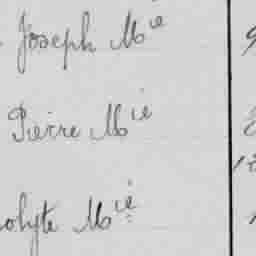 Joseph Mie
Pierre Mie
olyte Mie